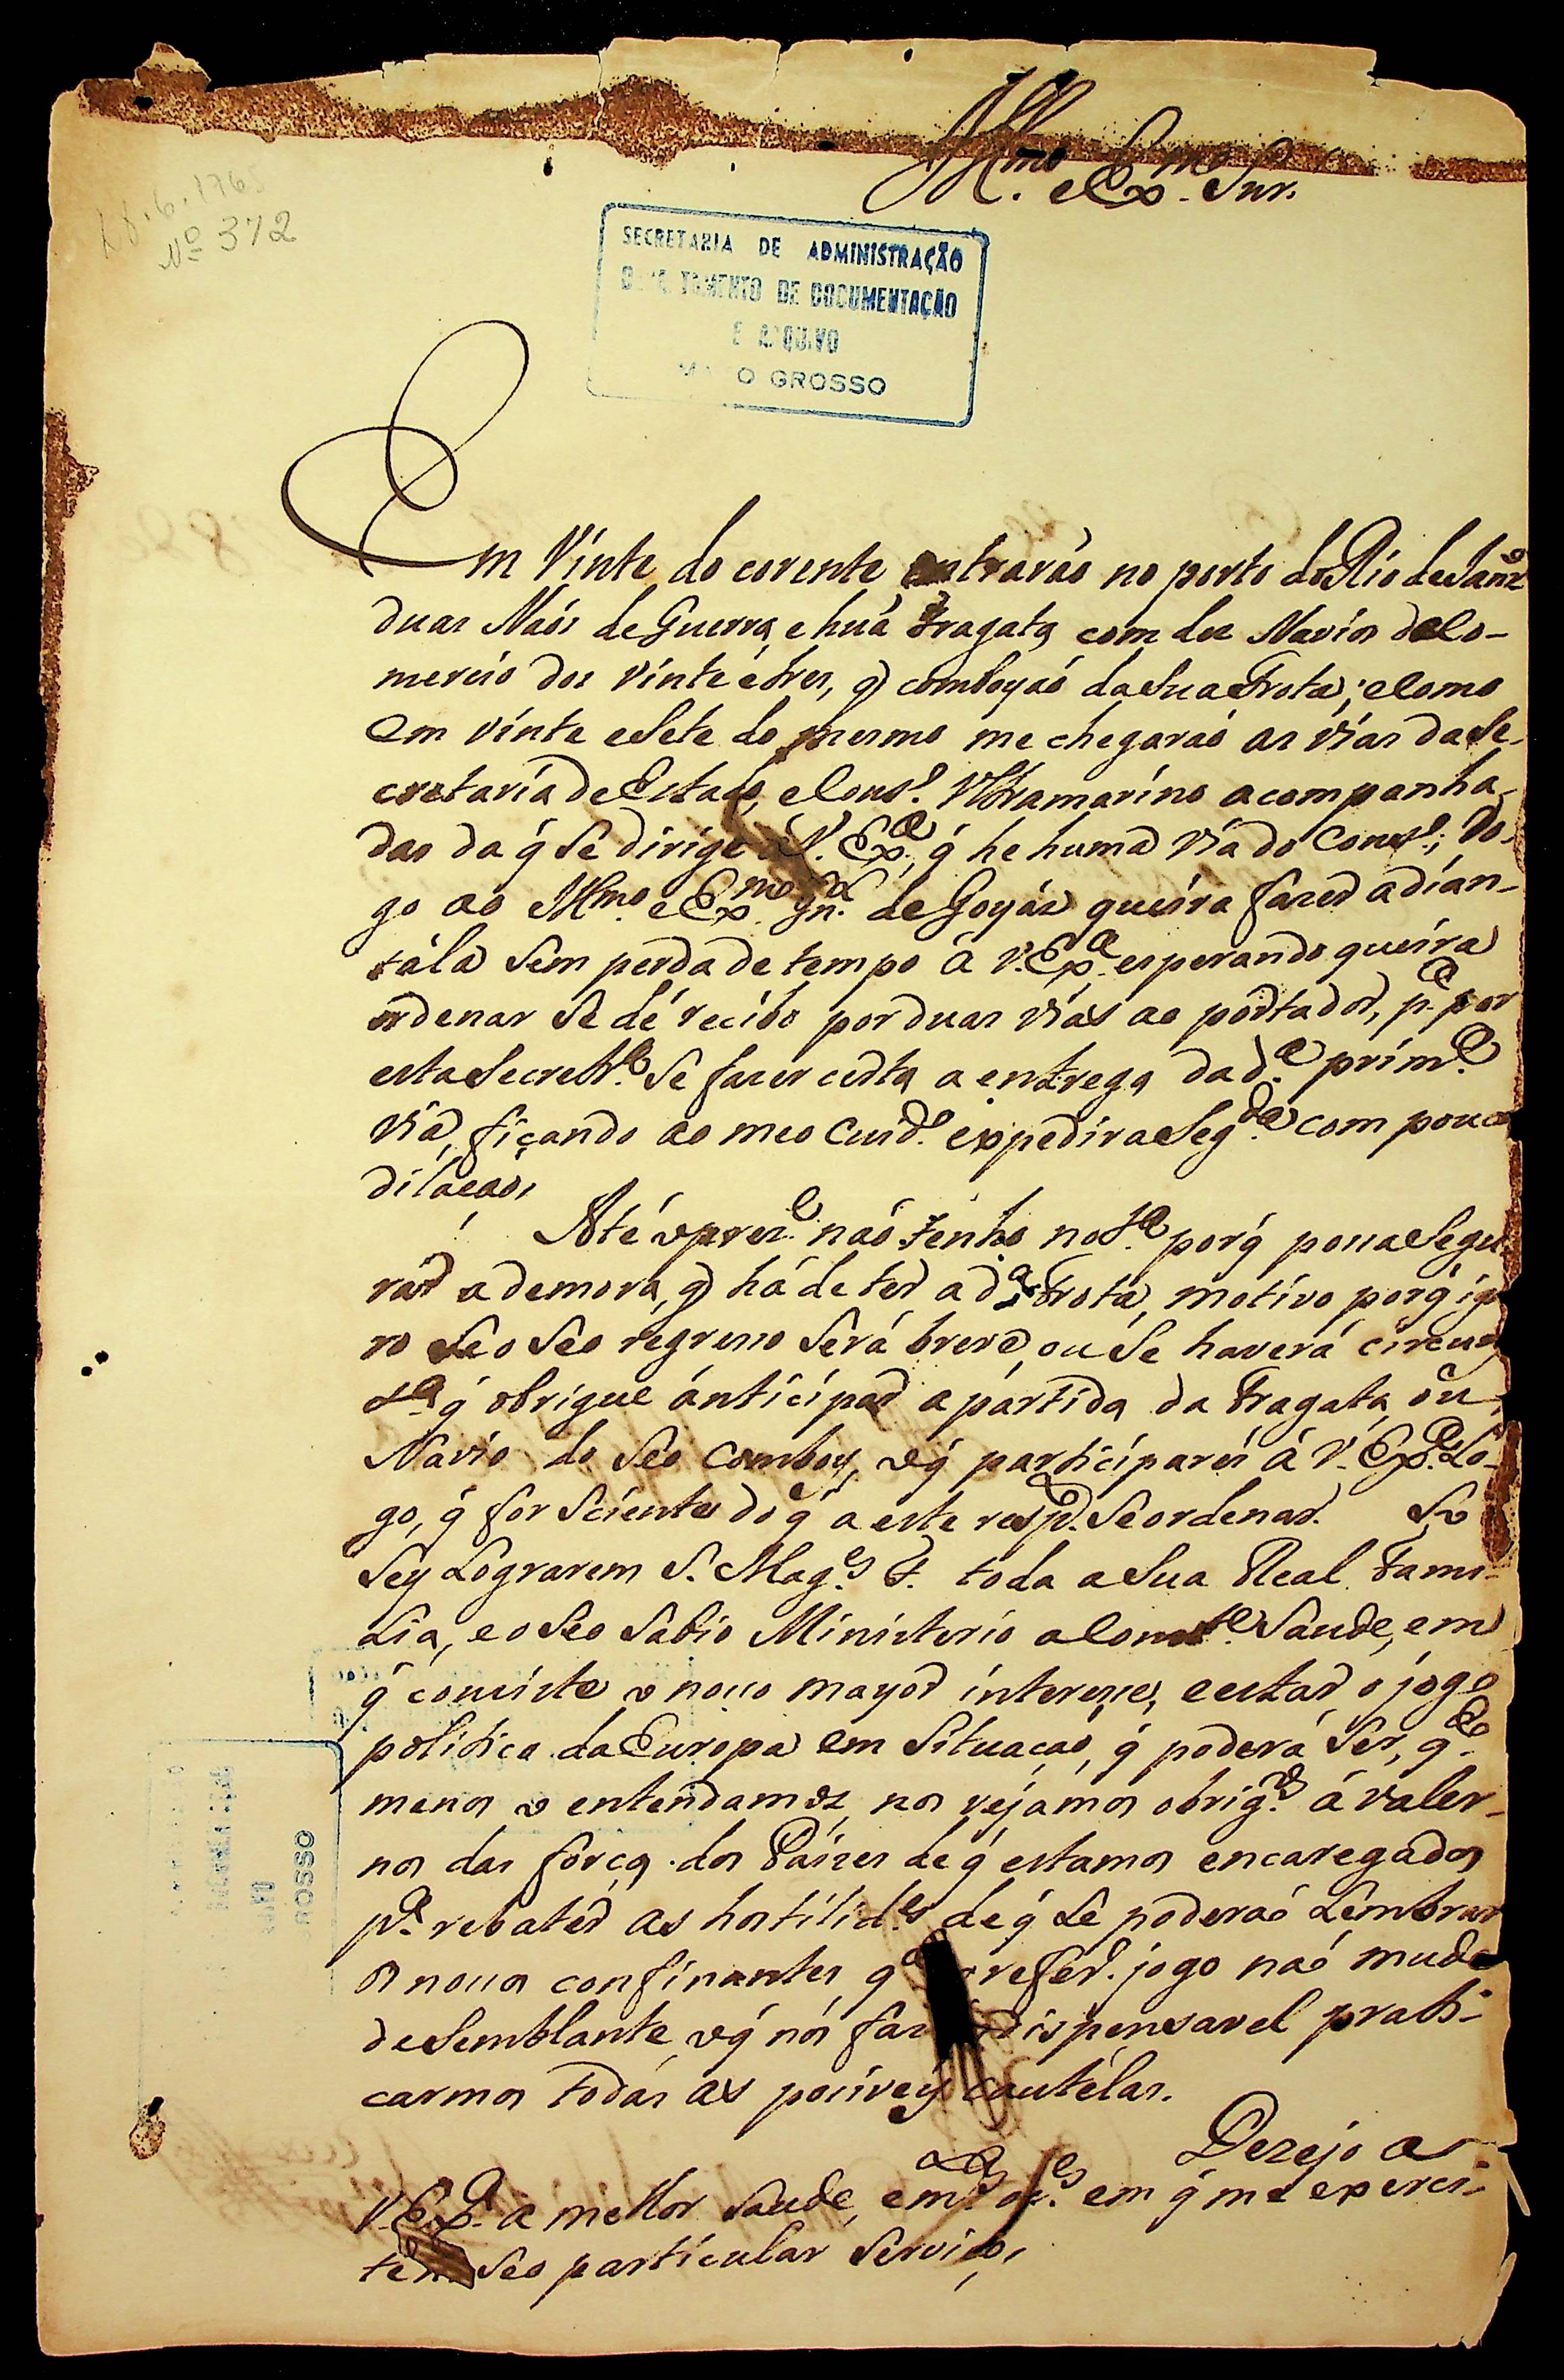 Illmo. e Exmo. Snr.
28.6.1765
Nº 372
SECRETARIA DE ADMINISTRAÇÃO
DE TAMENTO DE DOCUMENTAÇÃO
E ARQUIVO
MA O GROSSO
Em Vinte do corente entraráo no porto do Rio de Janrº
duas Náos de Guerra, e huá Fragata com dez Navios do Co-
mercio dos vinte é tres, q comboyáo da Sua Frota; e como
em vinte e Sete do mesmo me chegaráo as vias da Se-
cretaria de Estado, e Consº. Vltramarino acompanha-
das da q́ Se dirige á V. Exª, q́ he huma via do Consº.; Ro-
go ao Illmo. e Exmo. Gnal. de Goyáz queira fazer adian-
tála Sem perda de tempo á V. Exª. esperando queira
ordenar Se dé recibo por duas vias ao portador, pª. por
esta Secretrª. Se fazer certa a entrega da dª. primª.
via, ficando ao meo Cuidº. expedir a Segdª. com pouca
dilaçaó,
Até o prezᵉ. náo tenho notª. porq́ possa Segu-
rár a demora, q há de ter a dª. Frota, motivo porq́ igno-
ro Se o Seo regresso Será breve, ou Se haverá circuns-
tª. q́ obrigue ánticipar a partida da Fragata, ou
Navio do Seo Comboy, o q́ participarei á V. Exª. Lo-
go, q́ for Sciente do q́ a este respº. Se ordenar. So
Sey Lograrem S. Magᵉˢ. F. toda a Sua Real Fami-
Lia, e o Seo Sabio Ministerio a Constᵉ. Saude, em
q́ consiste o nosso mayor interesse, e estar o jogo
politico da Europa em Situaçaó, q́ poderá Ser, qdº.
menos o entendamos, nos vejamos obrigᵒˢ. á valer-
nos das forças dos Paizes de q́ estamos encaregados
pª. rebater as hostilidᵉˢ. de q́ Se poderaó Lembrar
os nossos confinantes, qdº. o referdº. jogo naó mude
de Semblante, o q́ nós faz indispensavel prati-
carmos todas as possiveis cautélas.
Dezejo a
V. Exª. a melhor Saude, em q́ me exerci-
te no Seo particular Serviço,